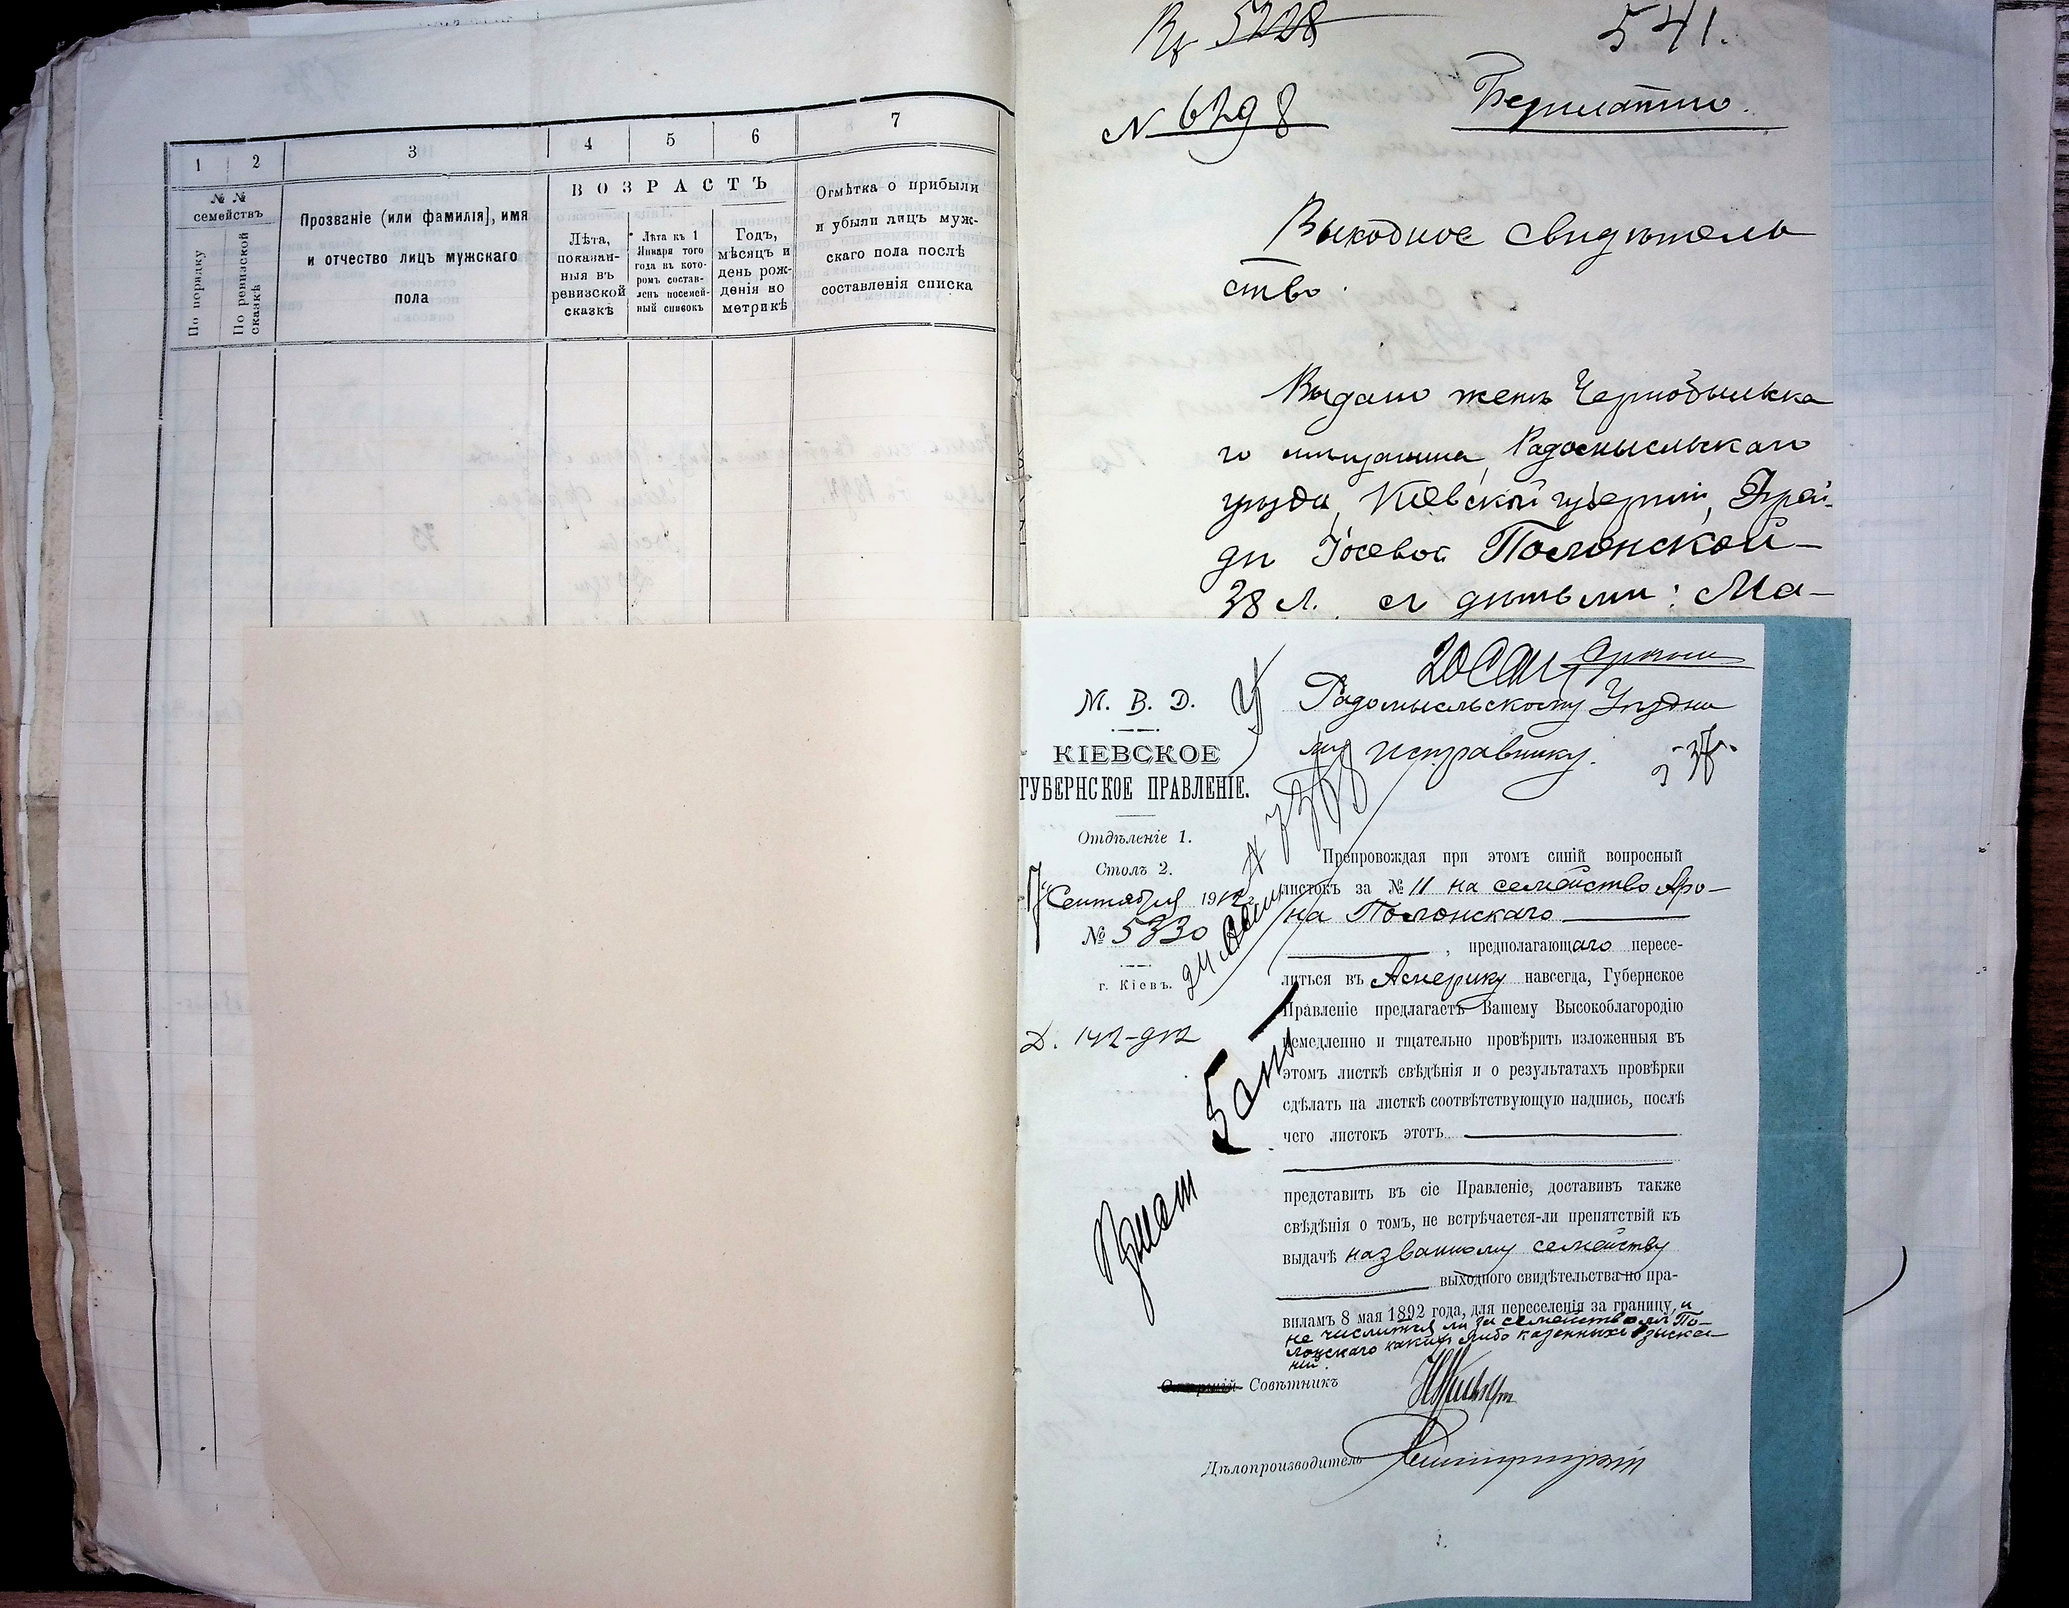 1
2
3
4
5
6
7
№ №
семействъ
По порядку
По ревизской сказкѣ
Прозваніе (или фамилія), имя
и отчество лицъ мужскаго
пола
ВОЗРАСТЪ
Лѣта,
показан-
ныя въ
ревизской
сказкѣ
Лѣта къ 1
Января того
года въ кото-
ромъ состав-
ленъ посемей-
ный списокъ
Годъ,
мѣсяцъ и
день рож-
денія по
метрикѣ
Отмѣтка о прибыли
и убыли лицъ муж-
скаго пола послѣ
составленія списка
5228
541.
№ 6298
Безплатно.
Выходное свидѣтель
ство.
Выдано женѣ Чернобыльска
го мѣщанина, Радомысльскаго
уѣзда, Кіевской губерніи, Фрей-
дѣ Іосевой Полонской —
38 л., съ дѣтьми: Ма-
М. В. Д.
КІЕВСКОЕ
ГУБЕРНСКОЕ ПРАВЛЕНІЕ.
Отдѣленіе 1.
Столъ 2.
17 Сентября 1912
№ 5330
г. Кіевъ.
Д. 142-912
20 Сент
Радомысльскому Уѣздно
му Исправнику.
Препровождая при этомъ синій вопросный
листокъ за № 11 на семейство Аро-
на Полонскаго
, предполагающаго пересе-
литься въ Америку навсегда, Губернское
Правленіе предлагаетъ Вашему Высокоблагородію
немедленно и тщательно провѣрить изложенныя въ
этомъ листкѣ свѣдѣнія и о результатахъ провѣрки
сдѣлать на листкѣ соотвѣтствующую надпись, послѣ
чего листокъ этотъ
представить въ сіе Правленіе, доставивъ также
свѣдѣнія о томъ, не встрѣчается-ли препятствій къ
выдачѣ названному семейству
выходного свидѣтельства по пра-
виламъ 8 мая 1892 года, для переселенія за границу, и
не числится ли за семействомъ По-
лонскаго какихъ либо казенныхъ взыска-
ній.
Совѣтникъ
Дѣлопроизводитель